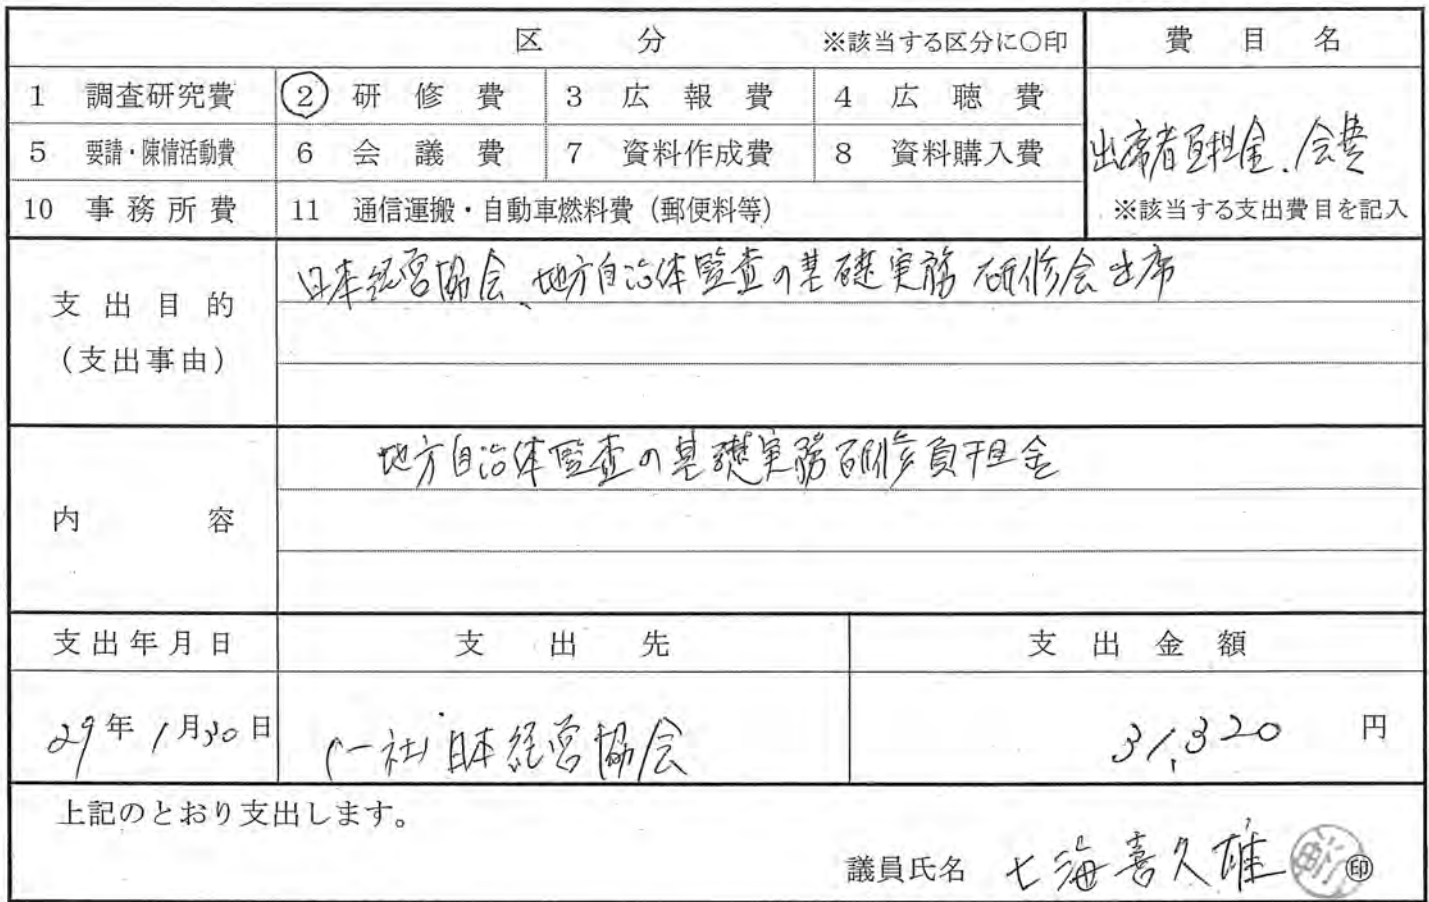 区分 ※該当する区分に○印 費目名
1 調査研究費 ② 研修費 3 広報費 4 広聴費
出席者負担金、会費
5 要請・陳情活動費 6 会議費 7 資料作成費 8 資料購入費
10 事務所費 11 通信運搬・自動車燃料費（郵便料等） ※該当する支出費目を記入
日本経営協会、地方自治体監査の基礎実務研修会出席
支出目的
（支出事由）
地方自治体監査の基礎実務研修負担金
内容
支出年月日 支出先 支出金額
29年1月30日 (一社)日本経営協会 31,320 円
上記のとおり支出します。
議員氏名 七海喜久雄 ㊞